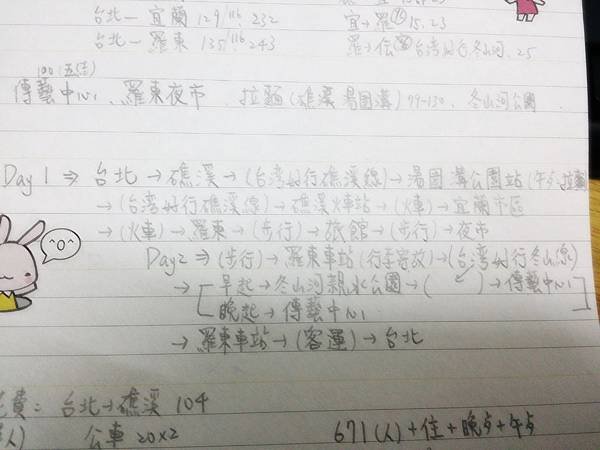 台北一宜蘭 129/116 232
宜→羅⑮ 15.23
台北一羅東 135/116 243
台湾好行冬山河.25
100(五結)
傳藝中心、羅東夜市 拉麵(礁溪湯圍溝)99-130、冬山河公園
Day 1 ⇒ 台北→礁溪→(台湾好行礁溪線)→湯圍溝公園站(午歺.拉麵
→(台湾好行礁溪線)→礁溪火車站→(火車)→宜蘭市區
→(火車)→羅東→(步行)→旅館→(步行)→夜市
Day2 ⇒(步行)→羅東車站(行李寄放)→(台湾好行冬山線)
→早起→冬山河親水公園→(〃)→傳藝中心
晚起→傳藝中心
→羅東車站→(客運)→台北
費: 台北→礁溪 104
人) 公車 20x2
671(人)+住+晚歺+午歺